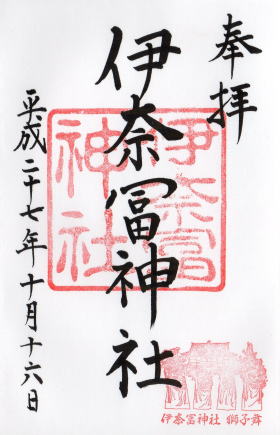 奉拝
伊奈冨神社
平成二十七年十月十六日
伊奈冨
神社
伊奈冨神社 獅子舞